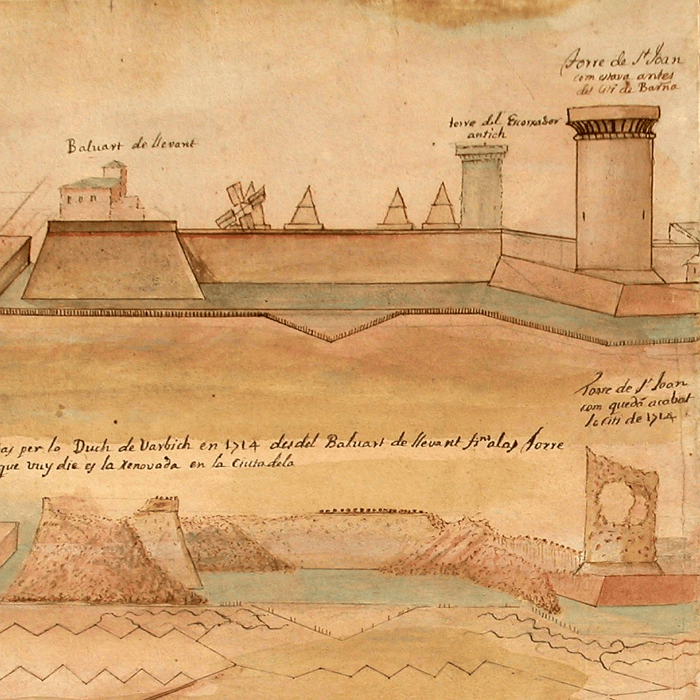 Torre de St Joan
com estava antes
del siti de Barña
torre del Escorxador
antich
Baluart de llevant
Torre de St Joan
com quedá acabat
lo siti de 1714
as per lo Duch de Varbich en 1714 desdel Baluart de llevant fins alas Torre
que vuy die es la renovada en la Ciutadela